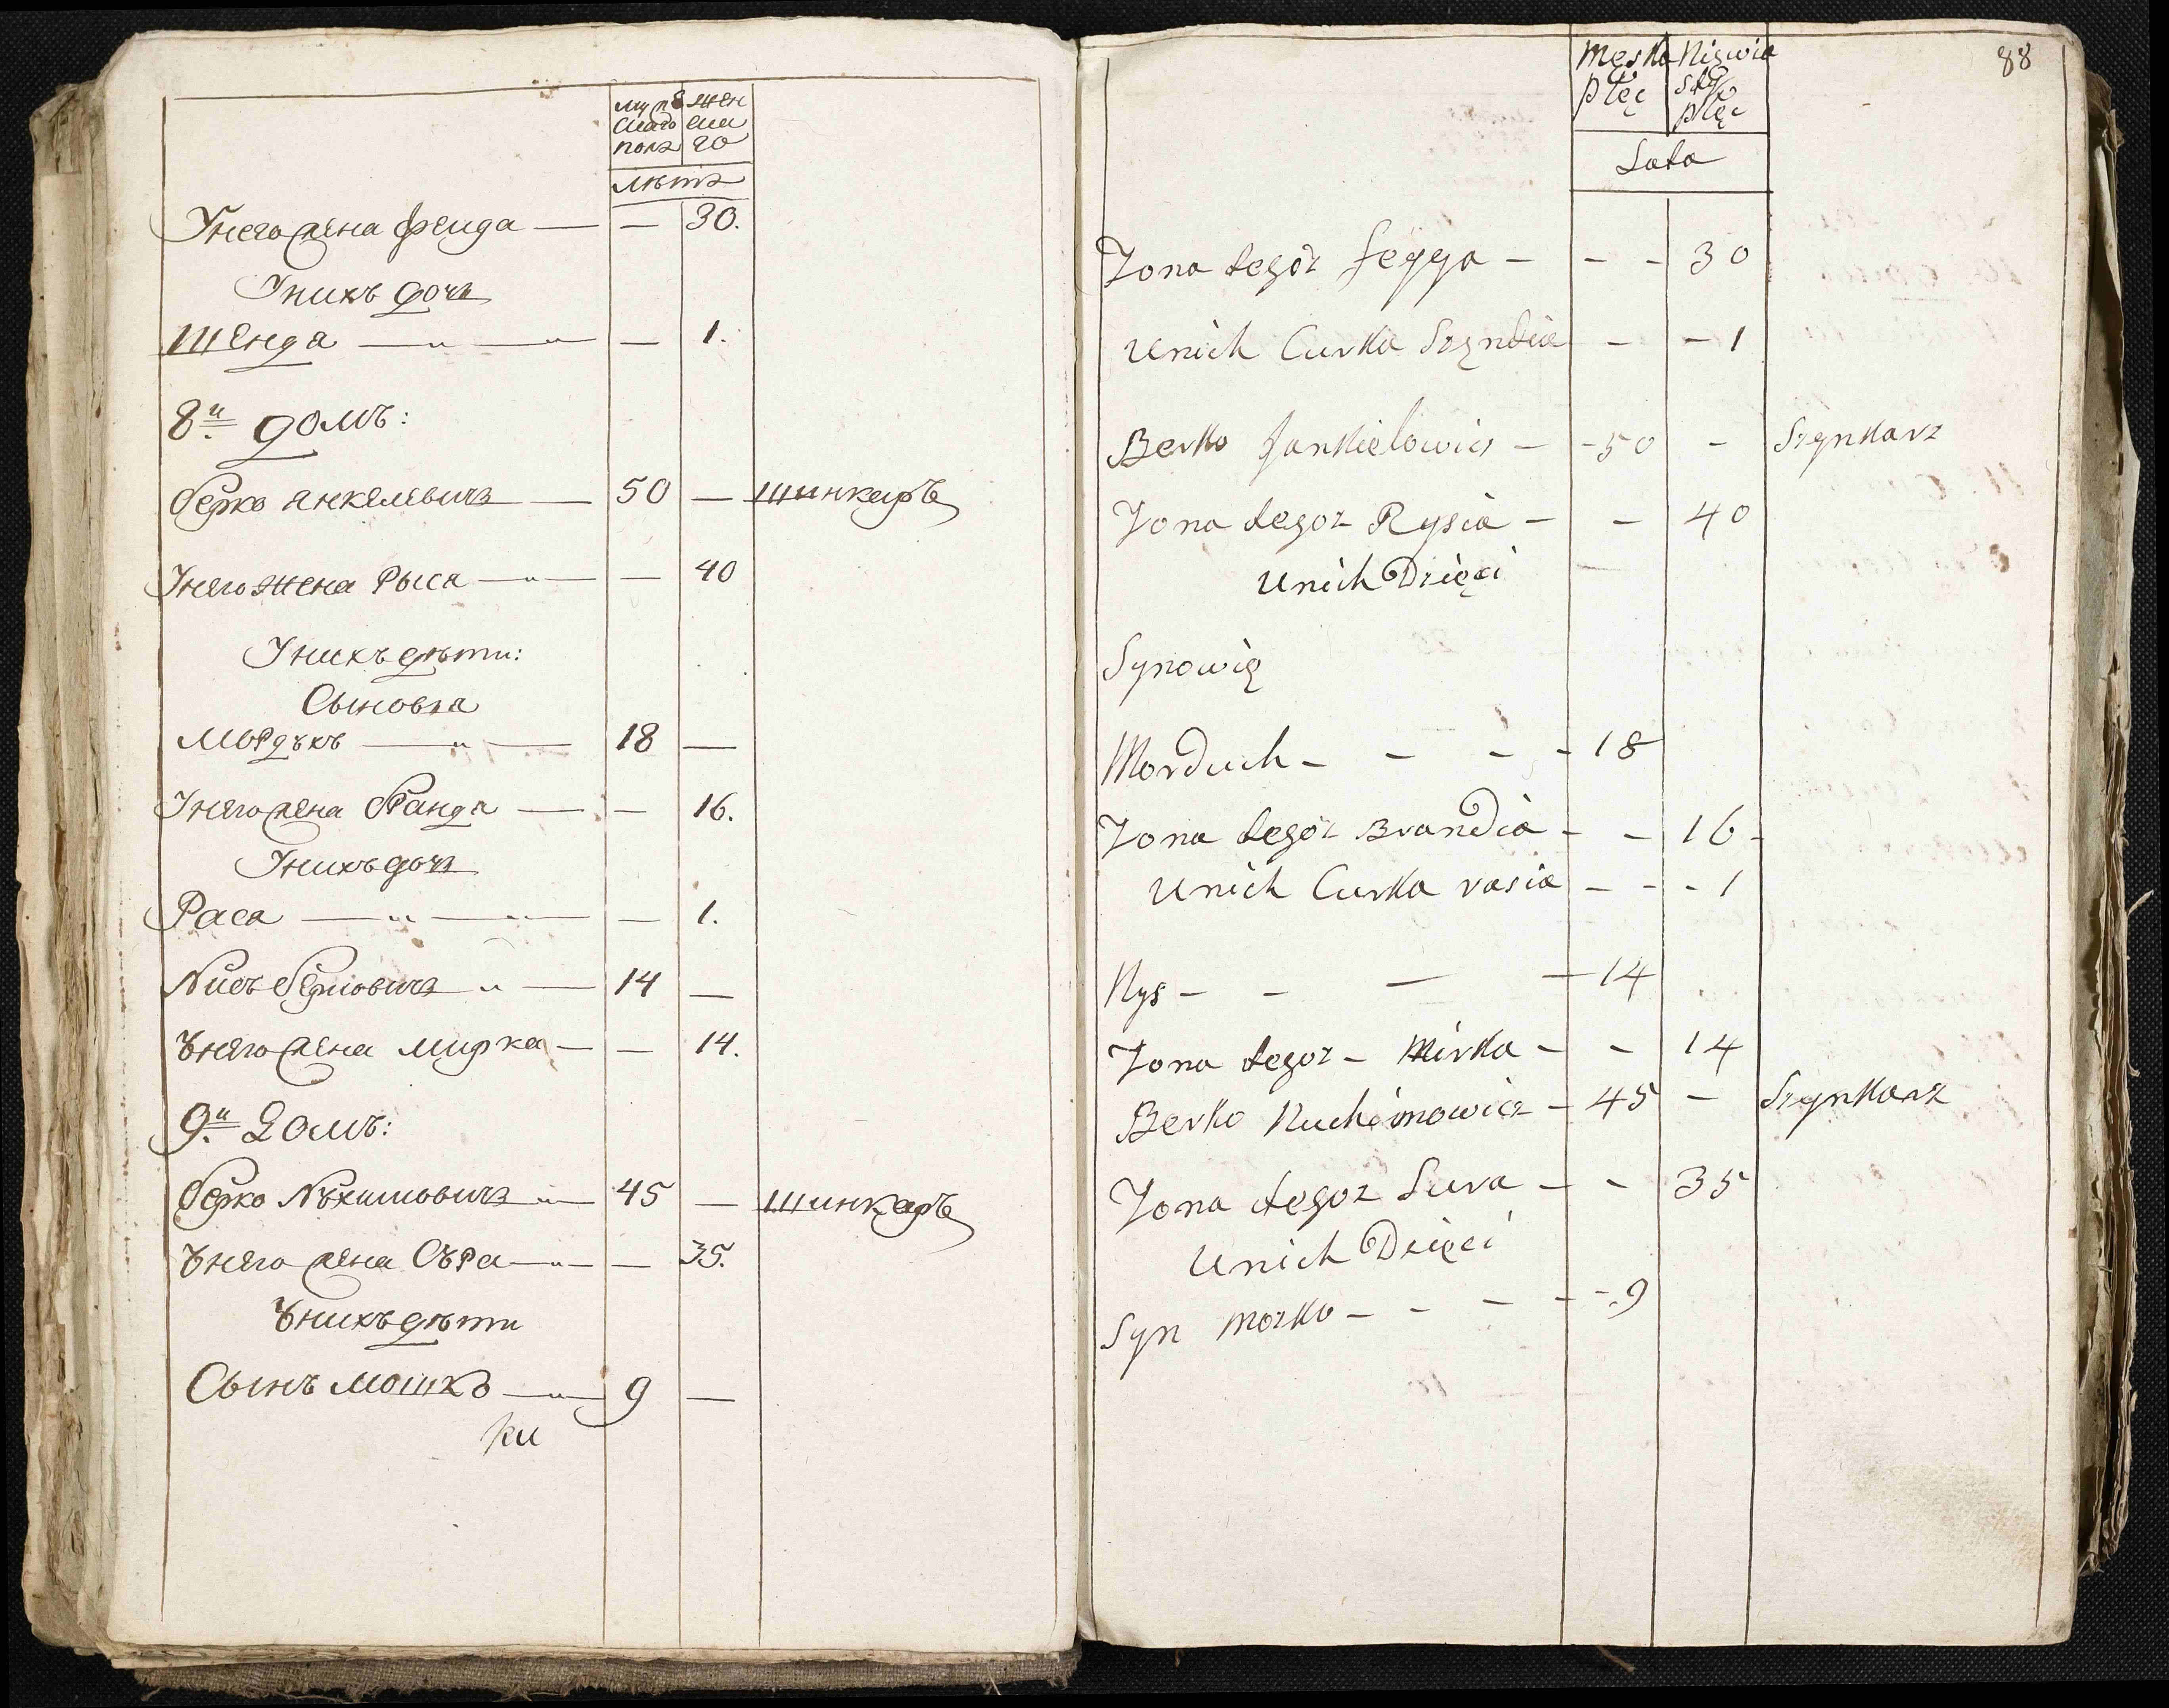 мужескаго пола женскаго
лѣтъ
У него жена фенда — — 30.
У нихъ дочь
Шенда — — 1.
8й домъ:
берко янкелевичъ — 50 — шинкарь
У него жена Рыся — — 40
У нихъ дѣти:
Сыновья
Мордъхъ — 18 —
У него жена бранда — — 16.
У нихъ дочь
Раса — — 1.
Nисъ берковичъ — 14 —
ъ него жена мирка — — 14.
9й домъ:
берко Nъхимовичъ — 45 — шинкарь
ъ него жена Съра — — 35.
ъ нихъ дѣти
Сынъ мошко — 9 —
88
Męska płeć Niewiastka płeć
Lata
Zona tegóz feyga - - - 30
Unich Curka Szęndia - - 1
Berko Jankielowicz - - 50 - Szynkarz
Zona tegoz Rysia - - 40
Unich Dzięci
Synowię
Morduch - - - - 18
Zona tegóz Brandia - - 16 -
Unich Curka rasia - - - 1
Nys - - — — 14
Zona tegoz - Mirka - - 14
Berko Nuchimowicz - 45 - Szynkarz
Zona tegoz Sura - - 35
Unich Dzięci
Syn Mozko - - - - - 9